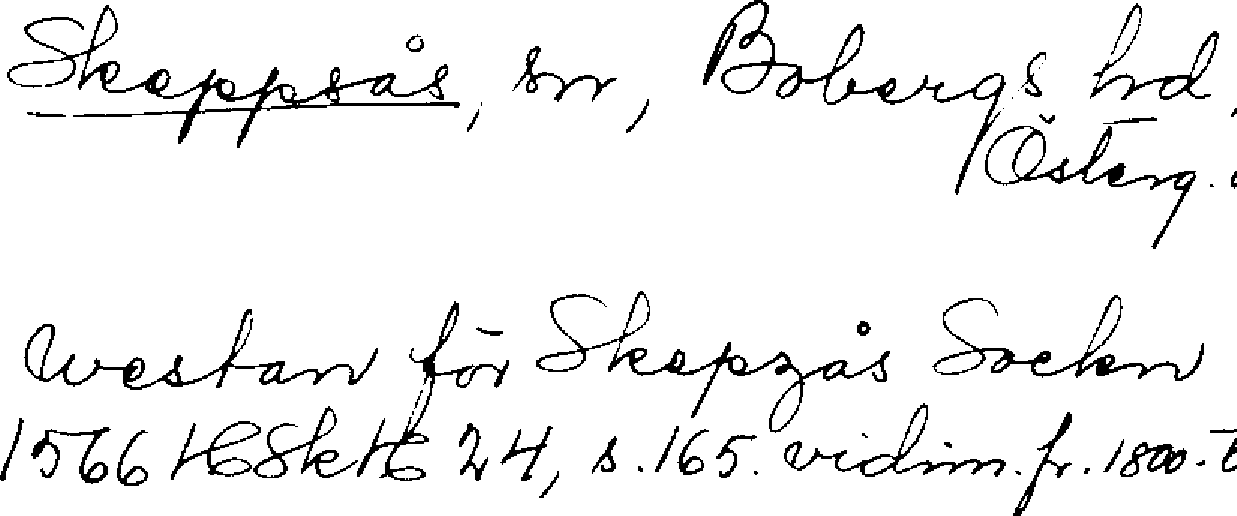 Skeppsås, sn, Bobergs hd,
Österg.
westan för Skepzås Sockn
1566 HSkH 24, s. 165. vidim. fr. 1800-t